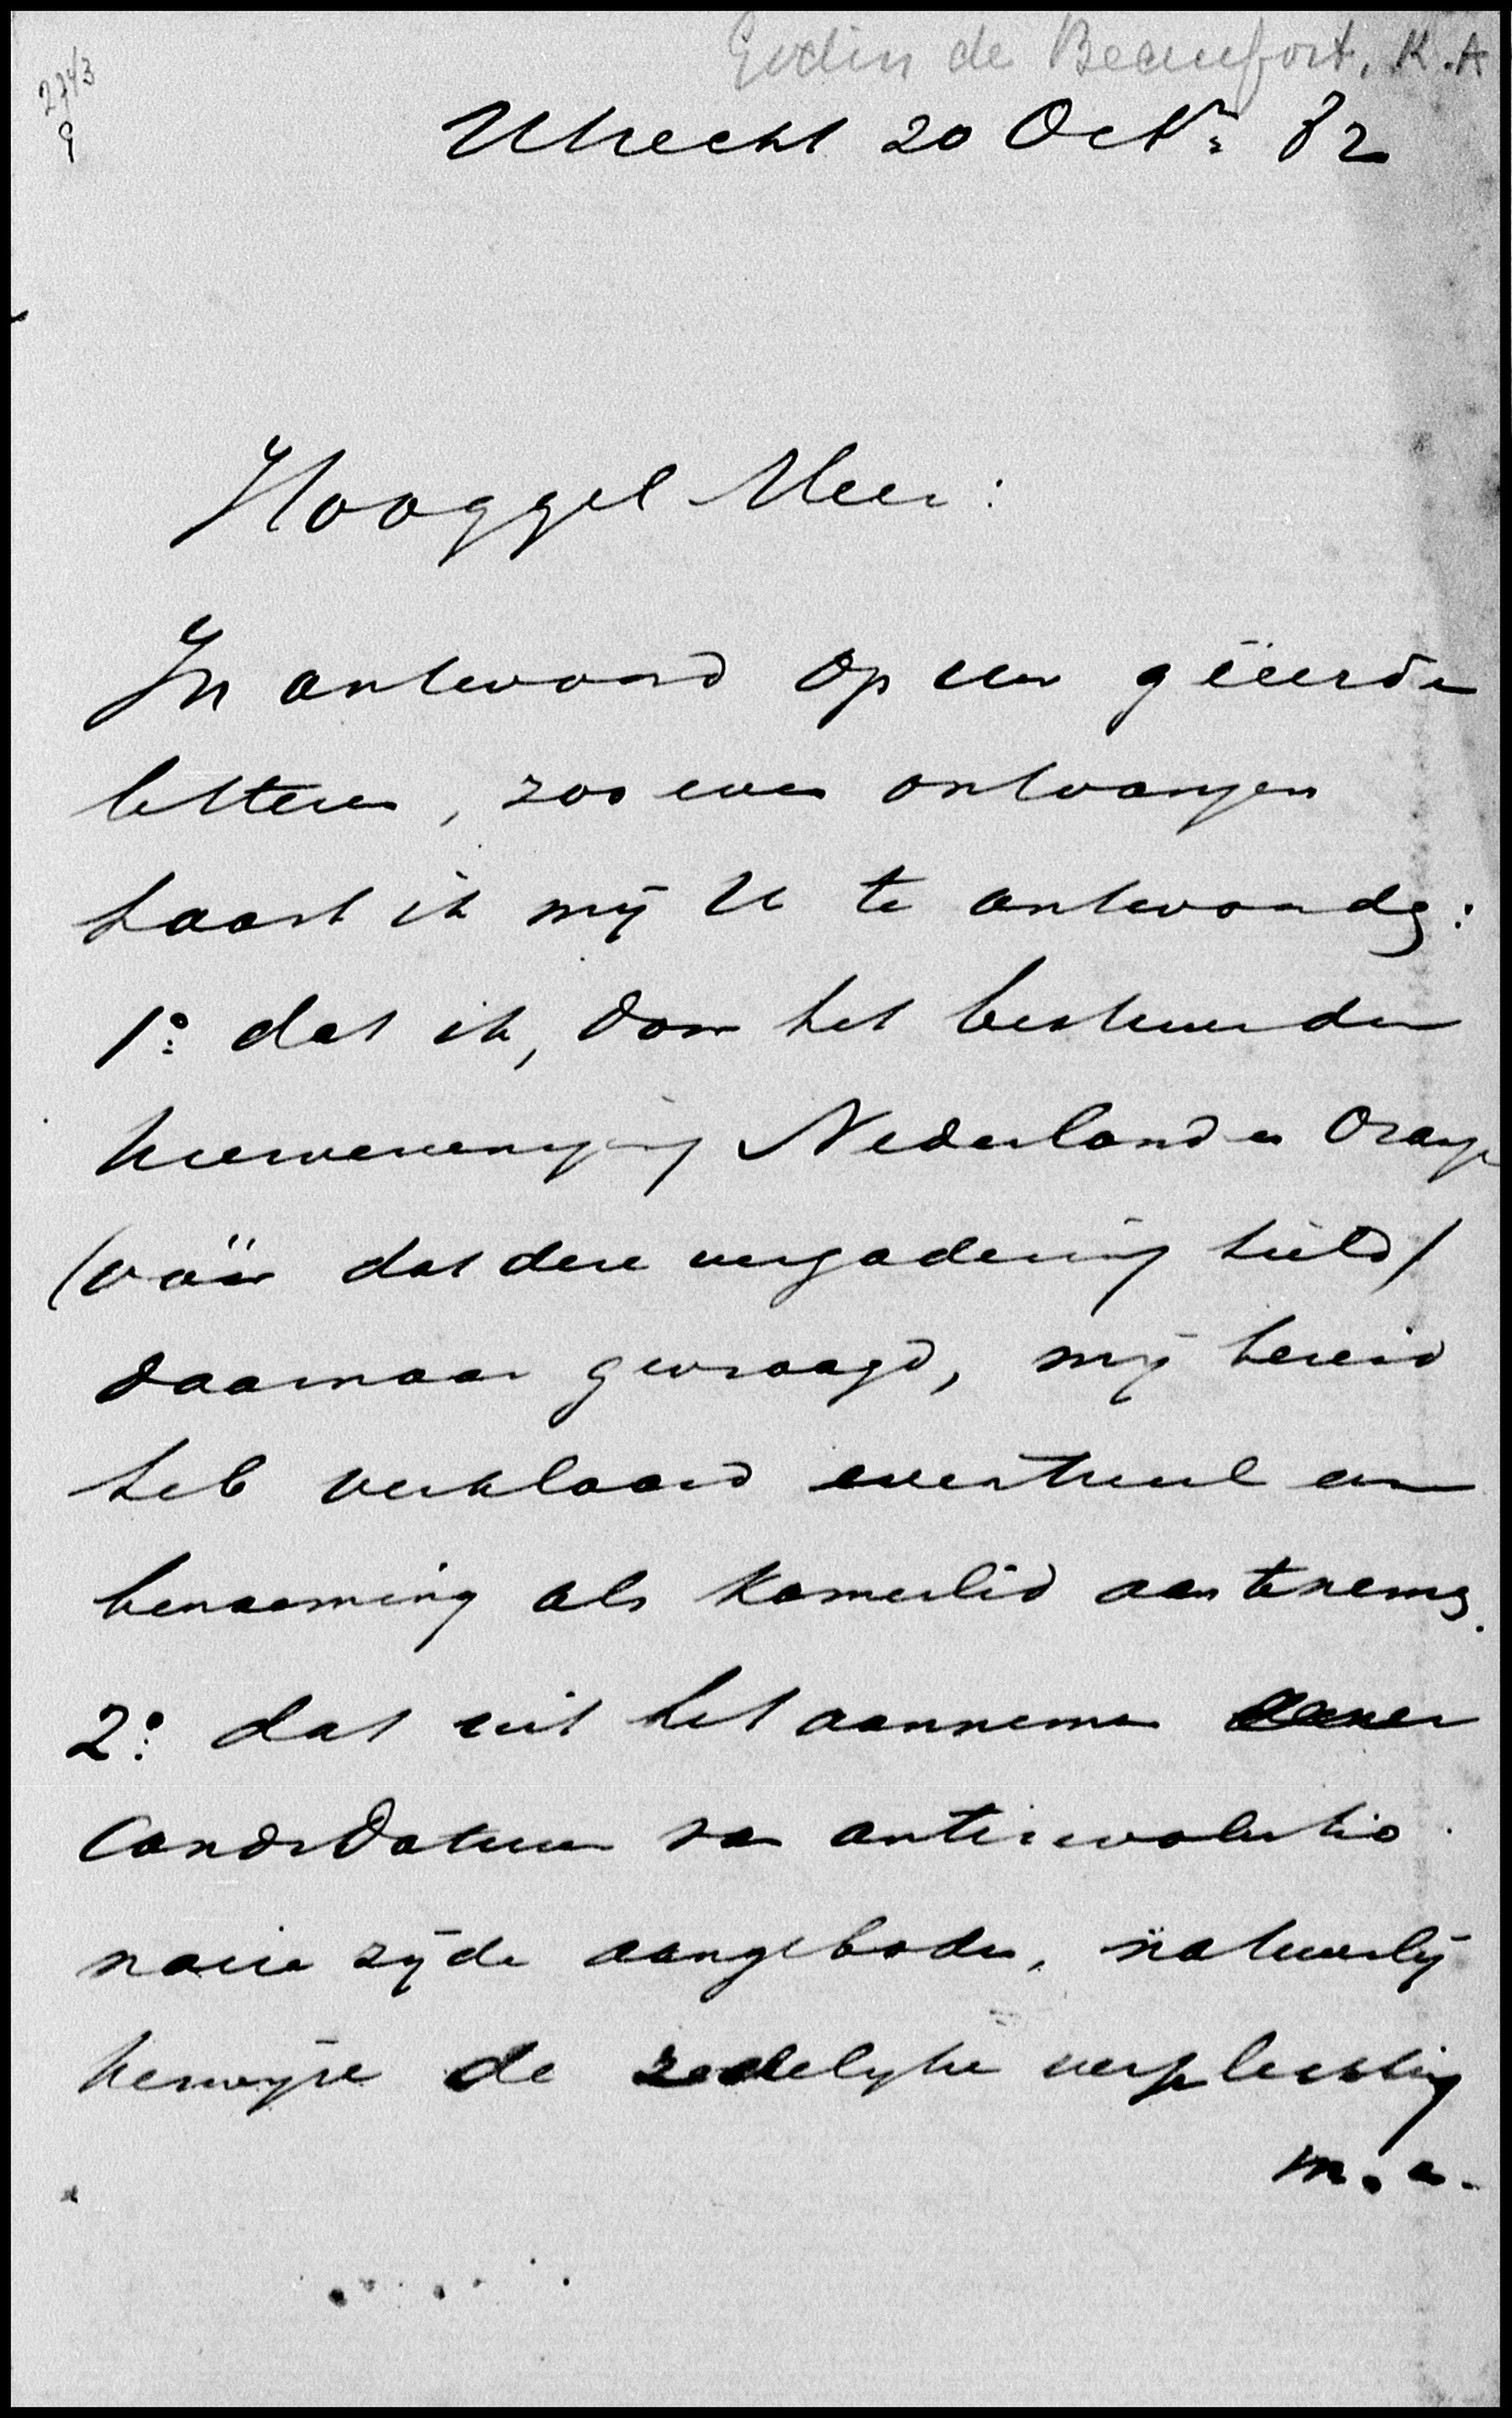 Godin de Beaufort, K.A
2743
9
Utrecht 20 Octr 82
Hooggel Heer:
In antwoord op uw geëerde
letteren, zoo even ontvangen
haast ik mij U te antwoorden:
1o: dat ik, door het bestuur der
kiesvereeniging Nederland en Oranje
(vóór dat deze vergadering hield)
daarnaar gevraagd, mij bereid
heb verklaard eventueel een
benoeming als Kamerlid aan te nemen.
2o: dat uit het aannemen eener
Candidatuur van antirevolutio
naire zijde aangeboden, natuurlij
kerwijze de zedelijke verplichting
m.i.